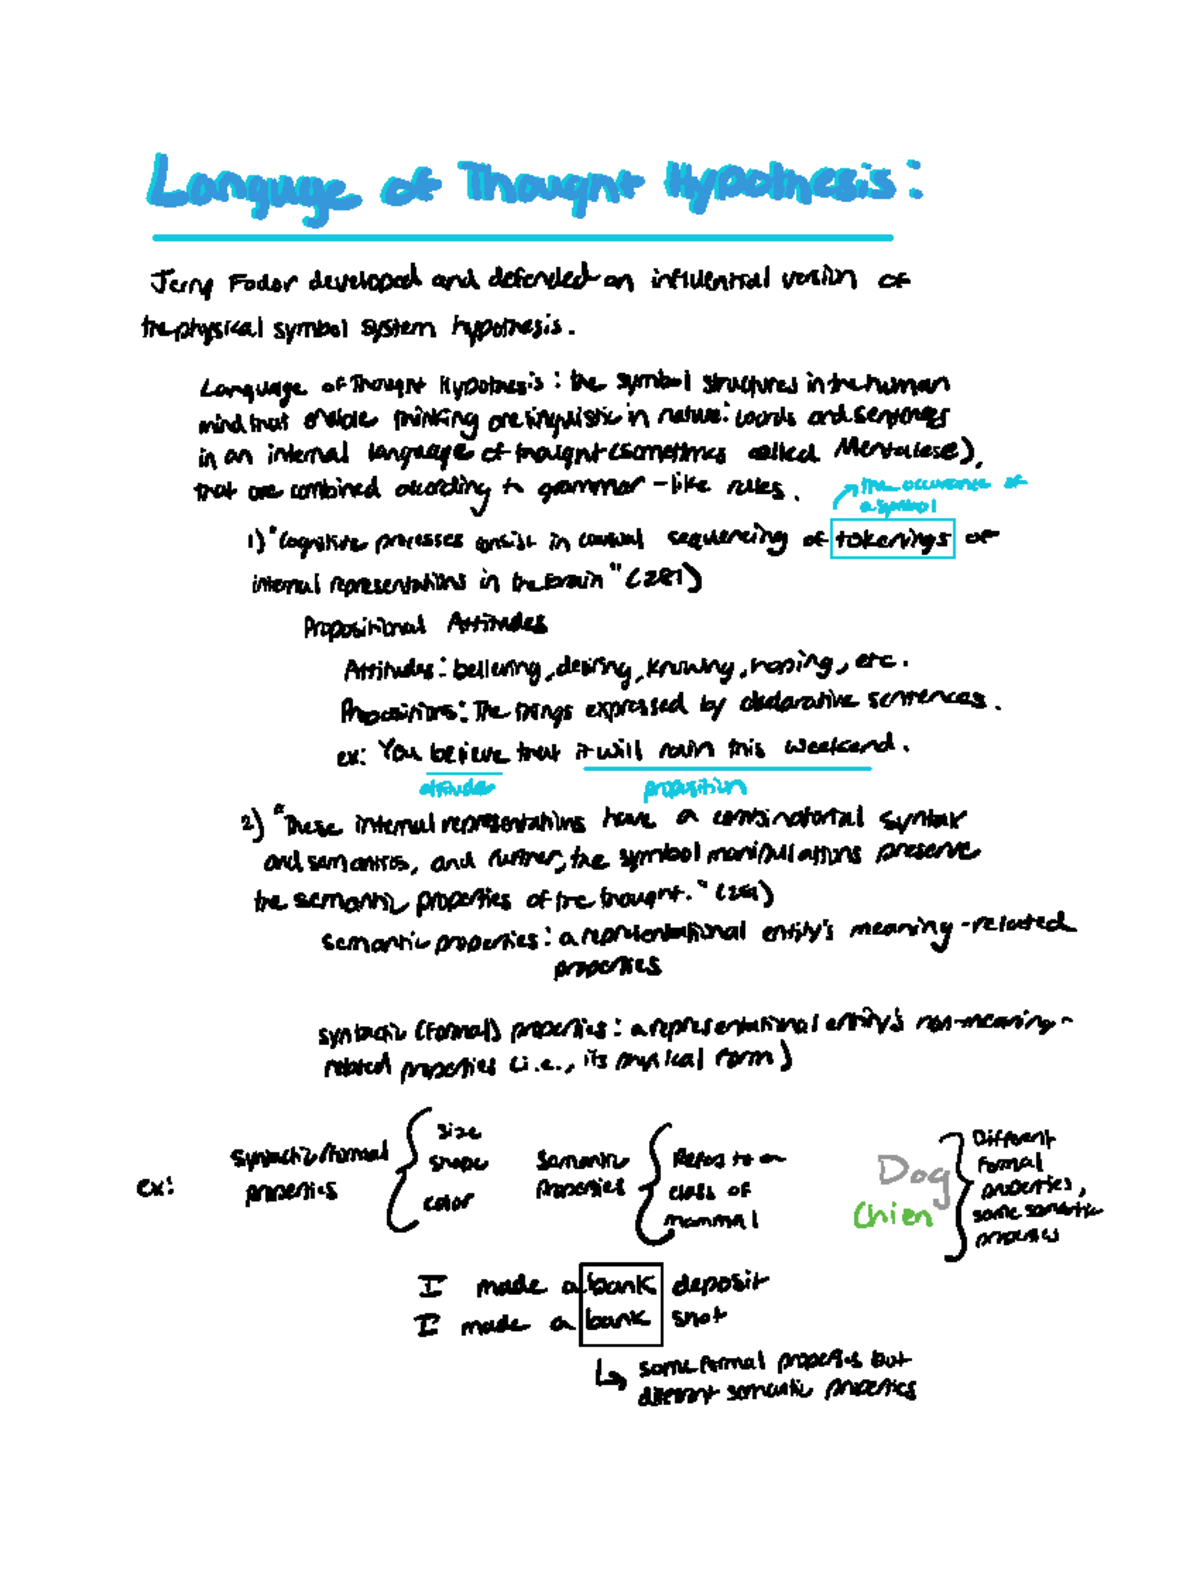 Language of Thought Hypothesis:
Jerry Fodor developed and defended an influential version of
the physical symbol system hypothesis.
Language of Thought Hypothesis: the symbol structures in the human
mind that enable thinking are linguistic in nature: words and sentences
in an internal language of thought (sometimes called Mentalese),
that are combined according to grammar-like rules.
the occurance of
a symbol
1) "Cognitive processes consist in causal sequencing of tokenings of
internal representations in the brain" (281)
Propositional Attitudes
Attitudes: believing, desiring, knowing, hoping, etc.
Propositions: The things expressed by declarative sentences.
ex: You believe that it will rain this weekend.
attitude proposition
2) "These internal representations have a combinatorial syntax
and semantics, and further, the symbol manipulations preserve
the semantic properties of the thought." (281)
Semantic properties: a representational entity's meaning-related
properties
syntactic (formal) properties: a representational entity's non-meaning-
related properties (i.e., its physical form)
ex: syntactic/formal properties
size
shape
color
Semantic
Properties
Refers to a
class of
mammal
Dog
Chien
Different
formal
properties,
same semantic
properties
I made a bank deposit
I made a bank shot
↳ same formal properties but
different semantic properties